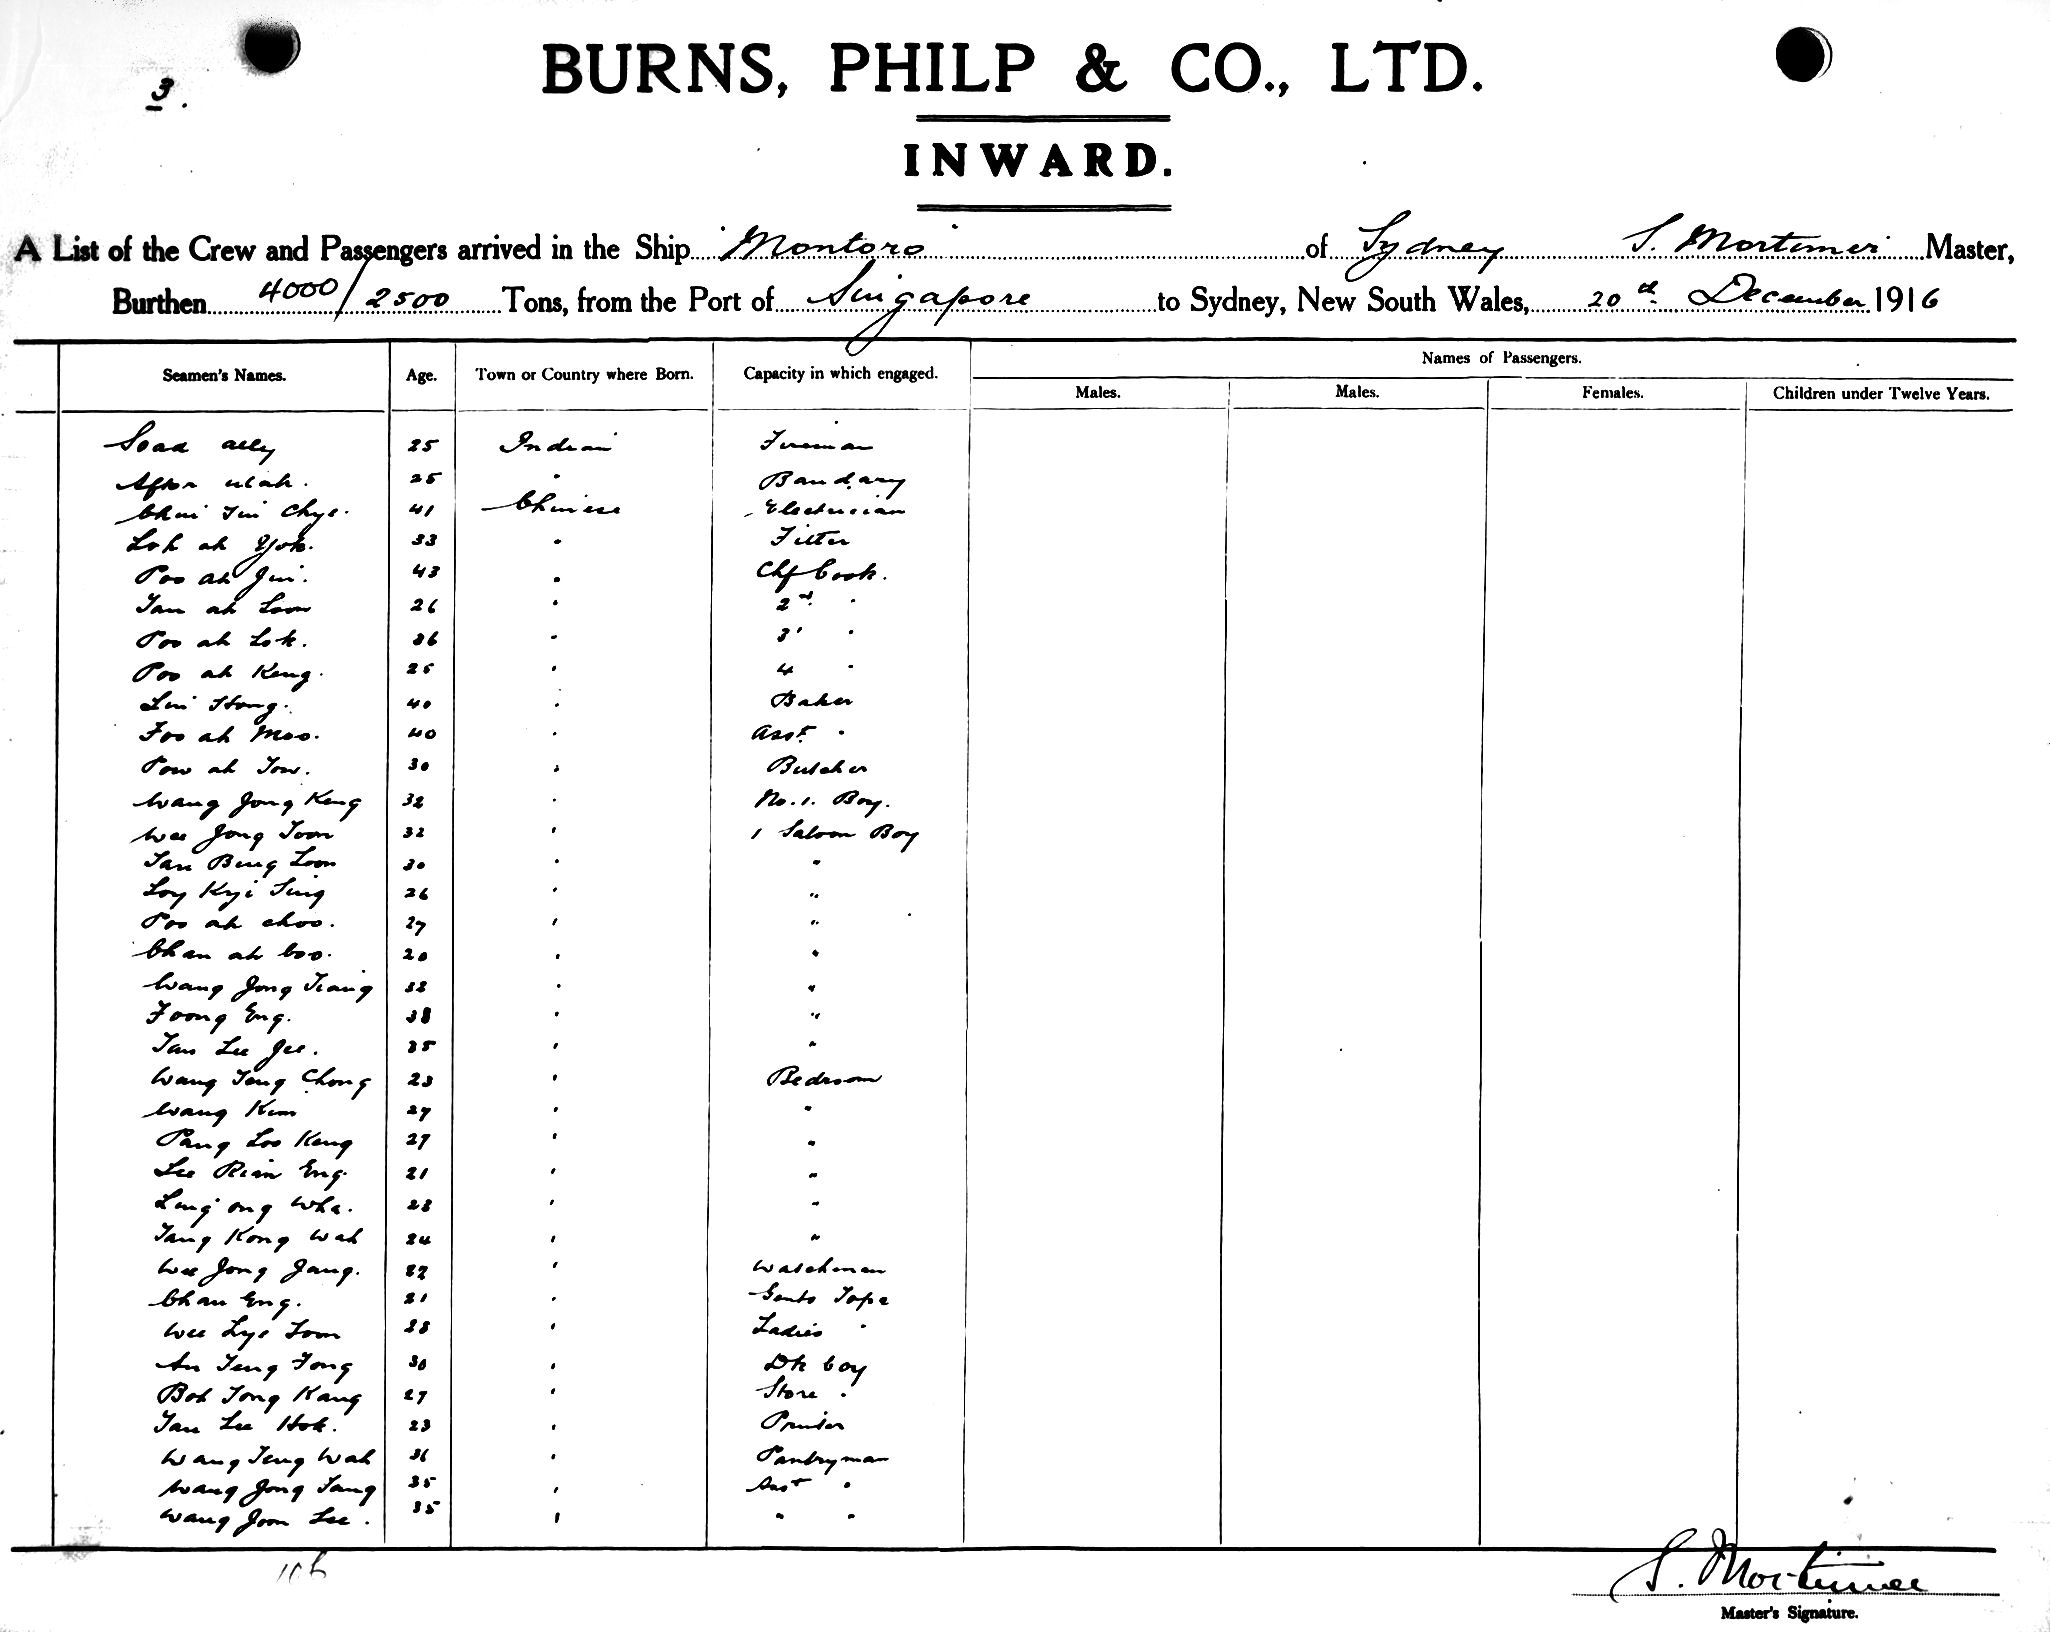 3.
BURNS, PHILP & CO., LTD.
INWARD.
A List of the Crew and Passengers arrived in the Ship "Montoro" of Sydney S. Mortimer Master,
Burthen 4000/2500 Tons, from the Port of Singapore to Sydney, New South Wales, 20th December 1916
Names of Passengers.
Seamen's Names. Age. Town or Country where Born. Capacity in which engaged. Males. Males. Females. Children under Twelve Years.
Soad ally 25 Indian Fireman
25 " Bandary
Chui Jui Chye. 41 Chinese Electrician
Loh ah Yok. 33 " Fitter
Poo ah Jui. 43 " Chf Cook.
Tan ah Loon 26 " 2nd "
Poo ah Lok. 36 " 3' "
Poo ah Keng. 25 " 4 "
Lin Hong. 40 " Baker
Foo ah Moo. 40 " Asst "
Pow ah Tow. 30 " Butcher
Wang Jong Keng 32 " No. 1. Boy.
Wee Jong Toon 32 " 1 Saloon Boy
Tan Beng Loon 30 " "
Loy Kyi Sing 26 " "
Poo ah choo. 27 " "
Chan ah Coo. 20 " "
Wang Jong Tiang 32 " "
Foong Eng. 38 " "
Tan Lee Jee. 35 " "
Wang Teng Chong 23 " Bedroom
Wang Kim 27 " "
Pang Loo Keng 27 " "
Lee Rian Eng. 21 " "
ong Wha. 22 " "
Tang Kong Wah 24 " "
Wee Jong Jang. 27 " Watchman
Chan Eng. 21 " Gents Topa
Wee Lye Toon 28 " Ladies "
An Teng Fong 30 " Dk boy
Boh Tong Kang 27 " Store "
Tan Lee Hok. 23 " Printer
Wang Teng Wah 31 " Pantryman
Wang Jong Tang 35 " Asst "
Wang Joon Lee. 35 " " "
S. Mortimer
Master's Signature.